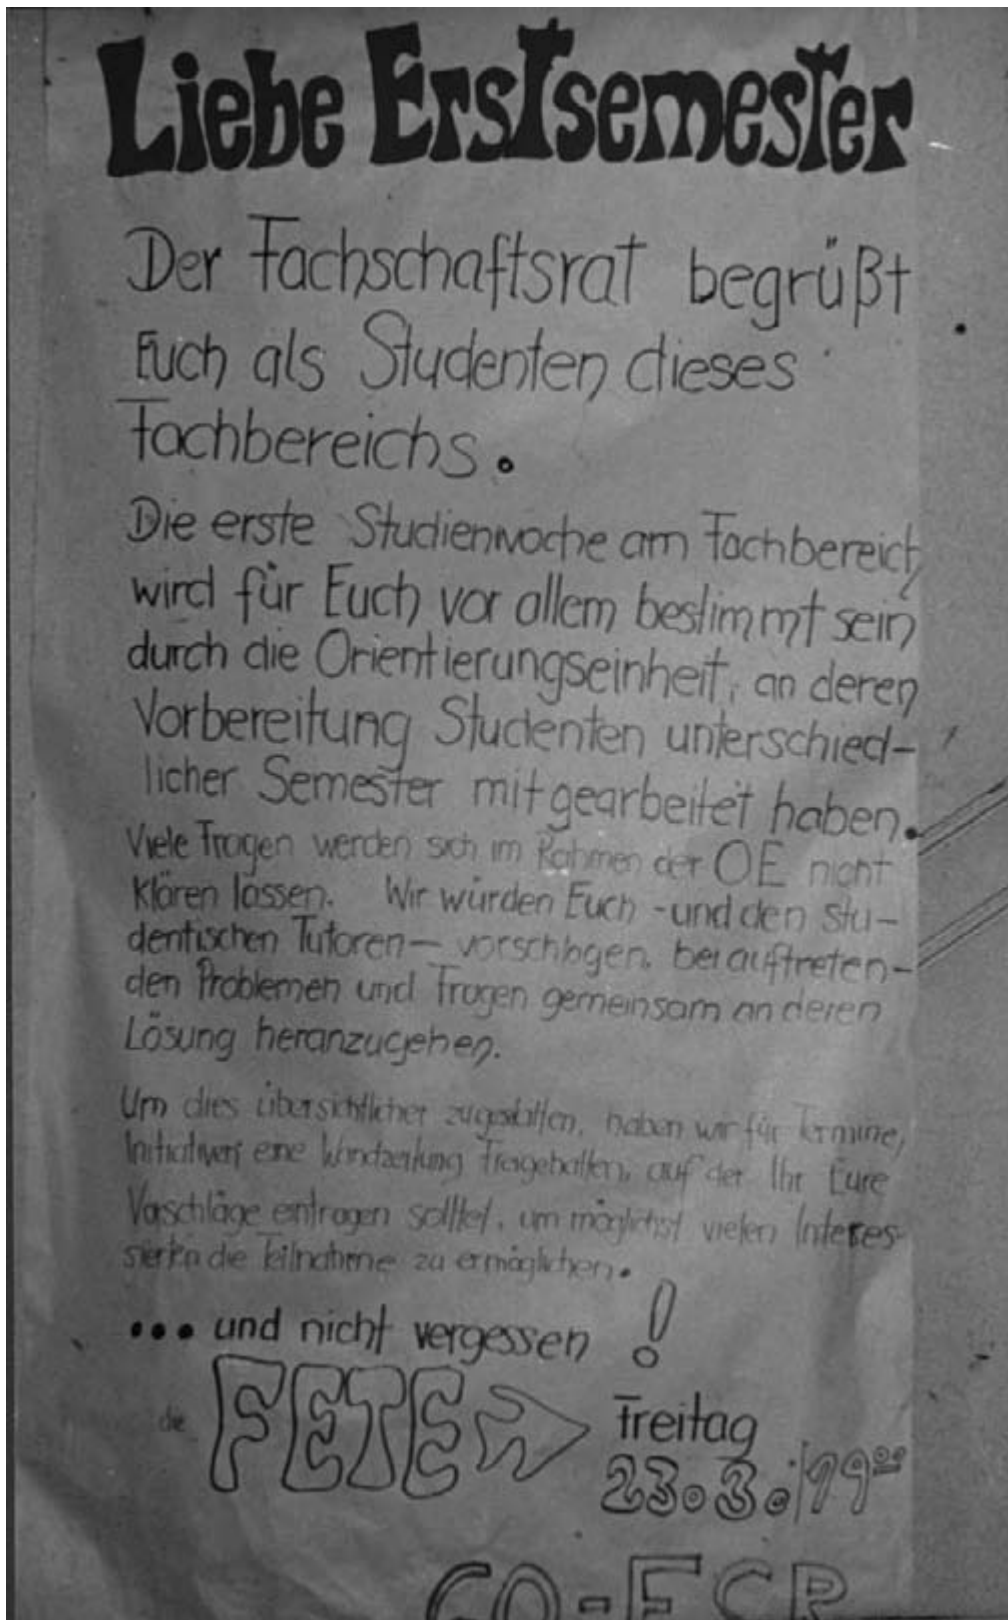 Liebe Erstsemester
Der Fachschaftsrat begrüßt
Euch als Studenten dieses
Fachbereichs.
Die erste Studienwoche am Fachbereich
wird für Euch vor allem bestimmt sein
durch die Orientierungseinheit, an deren
Vorbereitung Studenten unterschied-
licher Semester mitgearbeitet haben.
Viele Fragen werden sich im Rahmen der OE nicht
klären lassen. Wir würden Euch - und den stu-
dentischen Tutoren - vorschlagen, bei auftreten-
den Problemen und Fragen gemeinsam an deren
Lösung heranzugehen.
Um dies übersichtlicher zugestalten, haben wir für Termine,
Initiativen eine Wandzeitung freigehalten, auf der Ihr Eure
Vorschläge eintragen solltet, um möglichst vielen Interes-
sierten die Teilnahme zu ermöglichen.
... und nicht vergessen !
die FETE Freitag
23.3. 19⁰⁰